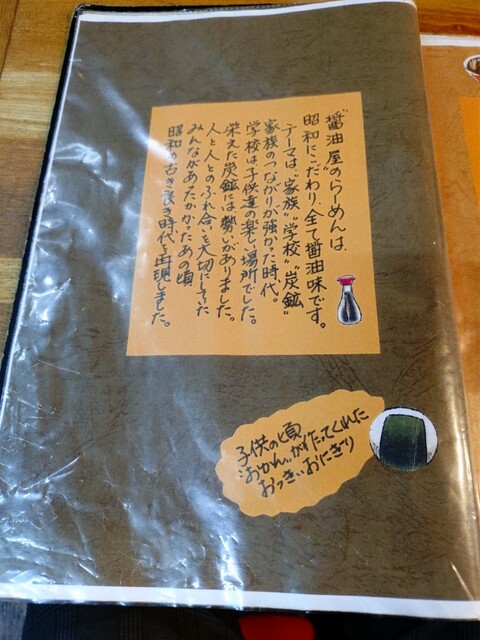 "醤油屋"のらーめんは、
昭和にこだわり、全て醤油味です。
テーマは"家族""学校""炭鉱"
家族のつながりが強かった時代。
学校は子供達の楽しい場所でした。
栄えた炭鉱には勢いがありました。
人と人とのふれ合いを大切にしてた
みんながあたたかかったあの頃
昭和の古き良き時代を再現しました。
子供の頃
"おかん"が作ってくれた
おっきいおにぎり